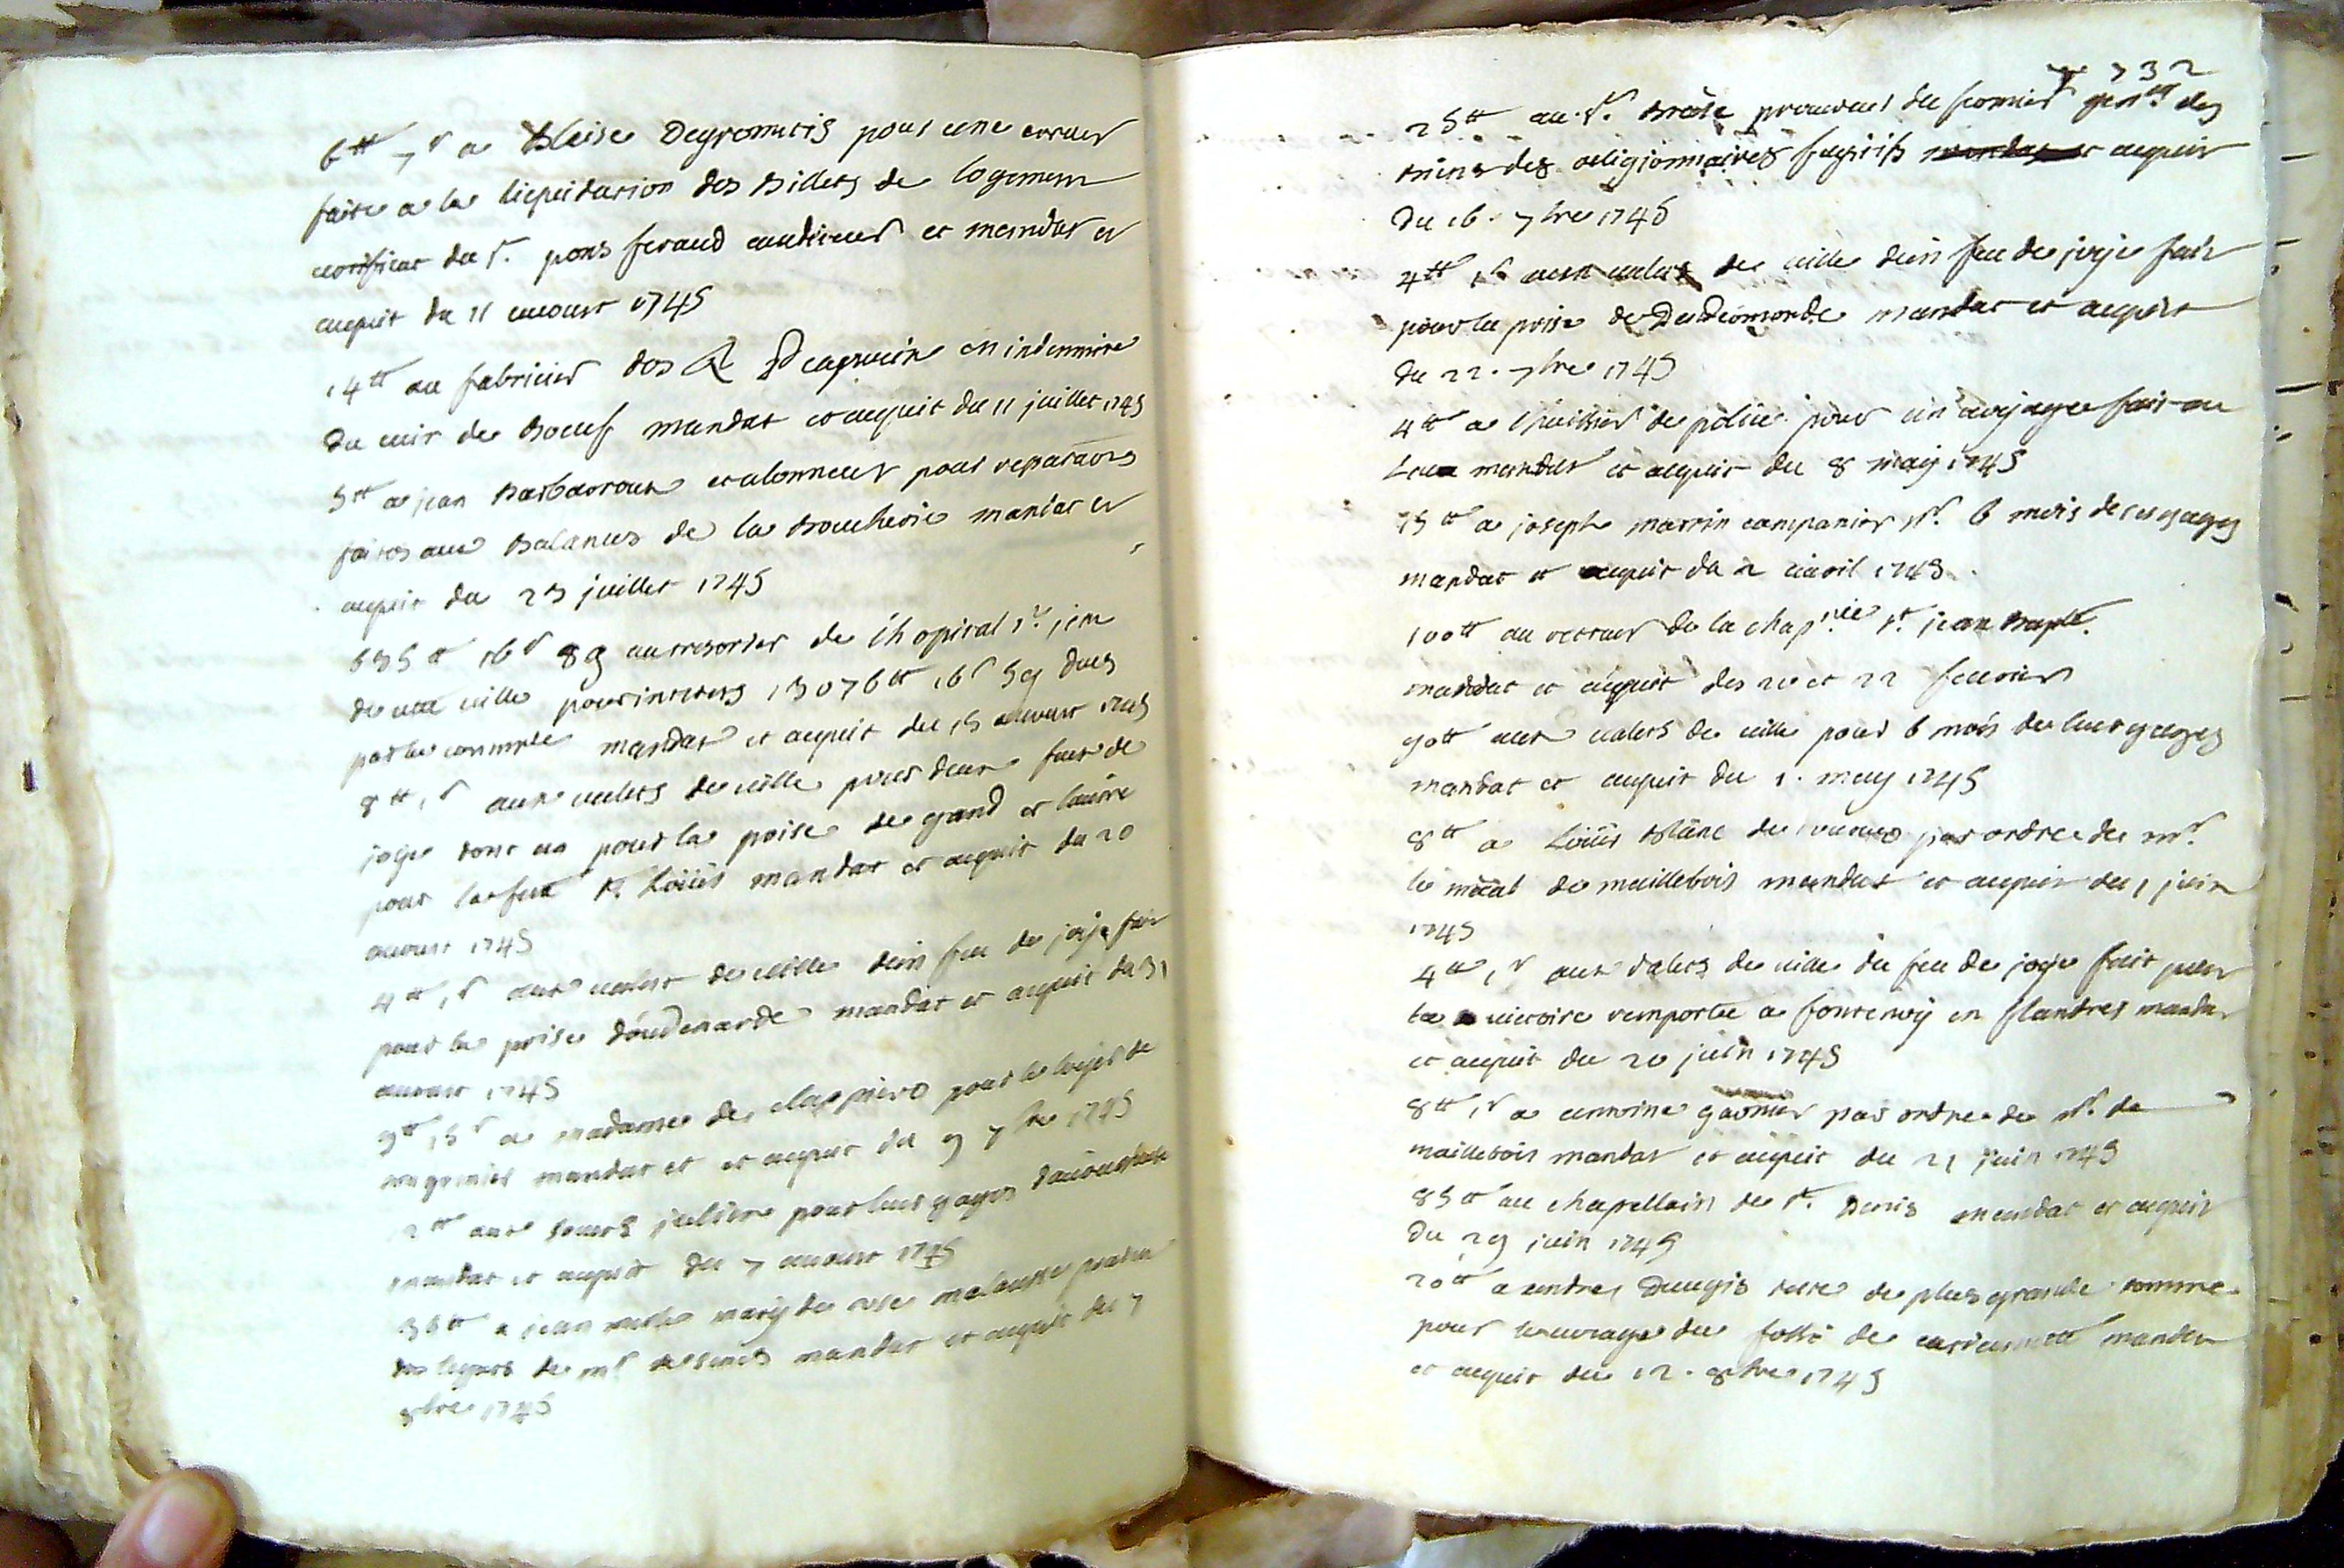 6tt 7s a Blaise Degromitis pour une erreur
faite a la liquidation des billets de logement
certificat du sr. pons feraud auditeur et mandat et
acquit du 11 auoust 1745
14tt au fabricier des RR PP capucin en indemnite
du cuir de boeuf mandat et acquit du 11 juillet 1745
5tt a jean Barbaroux etalonneur pour reparaons
faites aux balances de la boucherie mandat et
acquit du 23 juillet 1745
16s 8d au tresorier de lhopital st. jean
de cette ville pour interets 13076tt 16s 5d dues
par la commte mandat et acquit du 15 auoust 1745
8tt 1s aux valets de ville pour deux feux de
joye dont un pour la prise de gand et lautre
pour la fete st. Loüis mandat et acquit du 20
auoust 1745
4tt 1s aux valets de ville dun feu de joye fait
pour la prise doudenarde mandat et acquit du 31
auoust 1745
9tt 15s a madame de clappiers pour le loyer de
son grenier mandat et et acquit du 9 7bre 1745
2tt aux soeurs pour leur gages
mandat et acquit du 7 auoust 1745
a jean mary de
des legats de mr mandat et acquit du 7
8bre 1745
732
25tt au sr. procureur du fermier gnal des
biens des religionnaires fugitifs et acquit
du 16. 7bre 1745
4tt 1s aux valets de ville dun feu de joye fait
pour la prise de mandat et acquit
du 22. 7bre 1745
4tt a lhuissier de police pour un voyage fait au
Luc mandat et acquit du 8 may 1745
15tt a joseph martin campanier pr. 6 mois de ses gages
mandat et acquit du 2 avril 1745.
100tt au recteur de la chapnie st. jean bapte.
mandat et acquit des 20 et 22 feurier
90tt aux valets de ville pour 6 mois de leur gages
mandat et acquit du 1. may 1745
8tt a Loüis Blanc de par ordre de mr.
le mâal de maillebois mandat et acquit du 1 juin
1745
4tt 1s aux valets de ville du feu de joye fait pour
la victoire remportée a fontenoy en flandres mandat
et acquit du 20 juin 1745
8tt 1s a antoine garnier par ordre de mr. de
maillebois mandat et acquit du 21 juin 1745
85tt au chapellain de st. Denis mandat et acquit
du 29 juin 1745
20tt a andre reste de plus grande somme
pour louurage du fossé de mandat
et acquit du 12. 8bre 1745